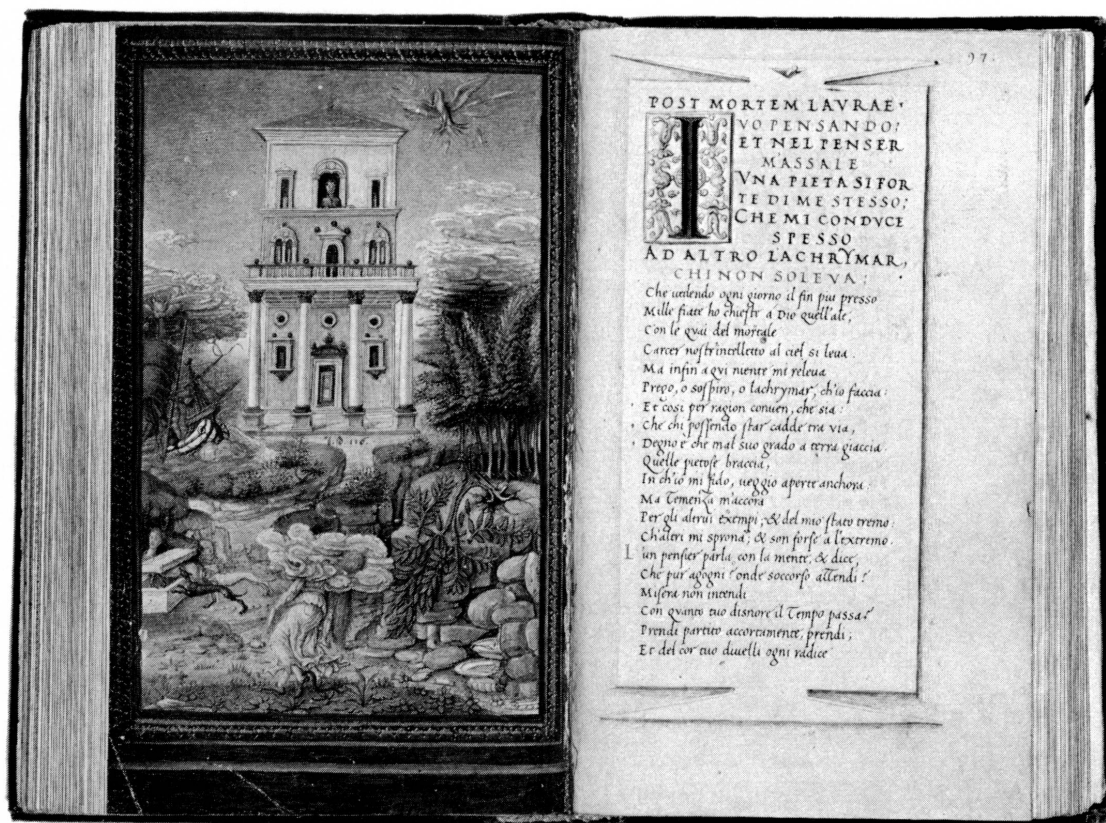 97.
POST MORTEM LAVRAE·
IVO PENSANDO:
ET NEL PENSER
M'ASSALE
VNA PIETA SI FOR
TE DI ME STESSO;
CHE MI CONDVCE
SPESSO
AD ALTRO LACHRYMAR,
CHI NON SOLEVA:
Che uedendo ogni giorno il fin piu presso
Mille fiate ho chieste a Dio quell'ale;
Con le quai del mortale
Carcer nostr'intelletto al ciel si leua.
Ma infin a qui niente mi releua
Prego, o sospiro, o lachrymar, ch'io faccia:
Et cosi per ragion conuen, che sia:
Che chi possendo star cadde tra via,
Degno e che mal suo grado a terra giaccia.
Quelle pietose braccia,
In ch'io mi fido, ueggio aperte anchora:
Ma Temenza m'accora
Per gli altrui exempi; & del mio stato tremo:
Ch'altri mi sprona; & son forse a l'extremo.
L un pensier parla con la mente, & dice,
Che pur agogni? onde soccorso attendi?
Misera non intendi
Con quanto tuo disnore il Tempo passa?
Prendi partito accortamente, prendi;
Et del cor tuo diuelli ogni radice